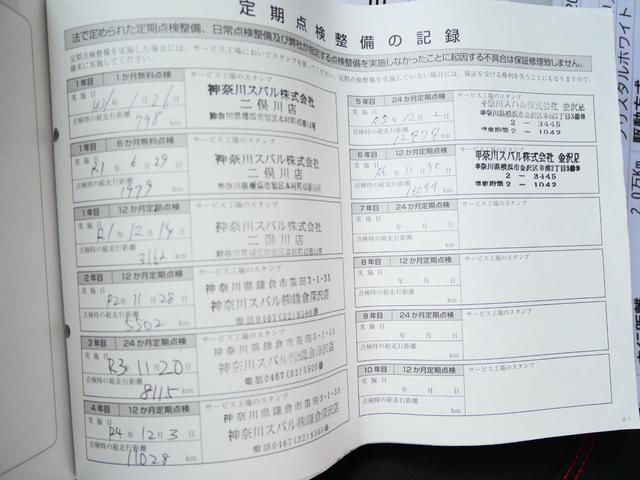 定期点検整備の記録
法で定められた定期点検整備、日常点検整備及び弊社が指定する点検整備を実施しなかったことに起因する不具合は保証修理致しません。
定期点検整備を実施した場合には、サービス工場においてスタンプを
確実に実施してください。
定期点検整備を実施していない場合には、保証を受ける権利を失うことにもなりますので、
1年目 1か月無料点検
サービス工場のスタンプ
実施日 H31年1月26日
点検時の総走行距離 798 km
神奈川スバル株式会社
二俣川店
1年目 6か月無料点検
サービス工場のスタンプ
実施日 R1年6月29日
点検時の総走行距離 1979 km
神奈川スバル株式会社
二俣川店
1年目 12か月定期点検
サービス工場のスタンプ
実施日 R1年12月14日
点検時の総走行距離 3162 km
神奈川スバル株式会社
二俣川店
2年目 12か月定期点検
サービス工場のスタンプ
実施日 R2年11月28日
点検時の総走行距離 5502 km
神奈川県鎌倉市笛田3-1-33
神奈川スバル㈱鎌倉深沢店
電話0467(32)8500番
3年目 24か月定期点検
サービス工場のスタンプ
実施日 R3年11月20日
点検時の総走行距離 8115 km
神奈川県鎌倉市笛田3-1-33
神奈川スバル㈱鎌倉深沢店
電話0467(32)8500番
4年目 12か月定期点検
サービス工場のスタンプ
実施日 R4年12月3日
点検時の総走行距離 11028 km
神奈川県鎌倉市笛田3-1-33
神奈川スバル㈱鎌倉深沢店
電話0467(32)8500番
5年目 24か月定期点検
サービス工場のスタンプ
実施日 R5年12月2日
点検時の総走行距離 km
神奈川スバル株式会社 金沢店
2-3445
2-1042
6年目 12か月定期点検
サービス工場のスタンプ
実施日 R6年11月30日
点検時の総走行距離 16099 km
神奈川スバル株式会社 金沢店
2-3445
2-1042
7年目 24か月定期点検
サービス工場のスタンプ
実施日 年 月 日
点検時の総走行距離 km
8年目 12か月定期点検
サービス工場のスタンプ
実施日 年 月 日
点検時の総走行距離 km
9年目 24か月定期点検
サービス工場のスタンプ
実施日 年 月 日
点検時の総走行距離 km
10年目 12か月定期点検
サービス工場のスタンプ
実施日 年 月 日
点検時の総走行距離 km
クリスタルホワイト